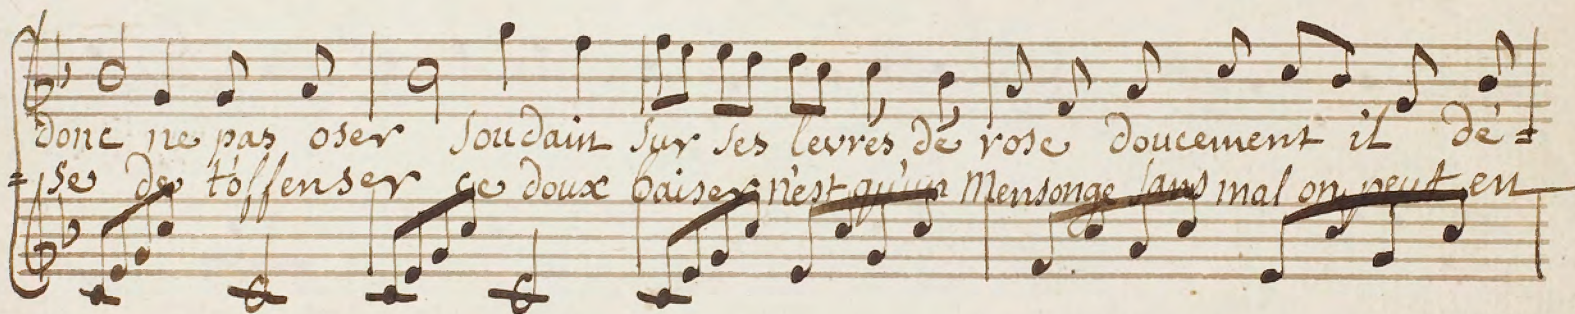 donc ne pas oser soudain sur ses levres de rose doucement il dé=
=se de t'offenser ce doux baiser n'est qu'un Mensonge sans mal on peut en